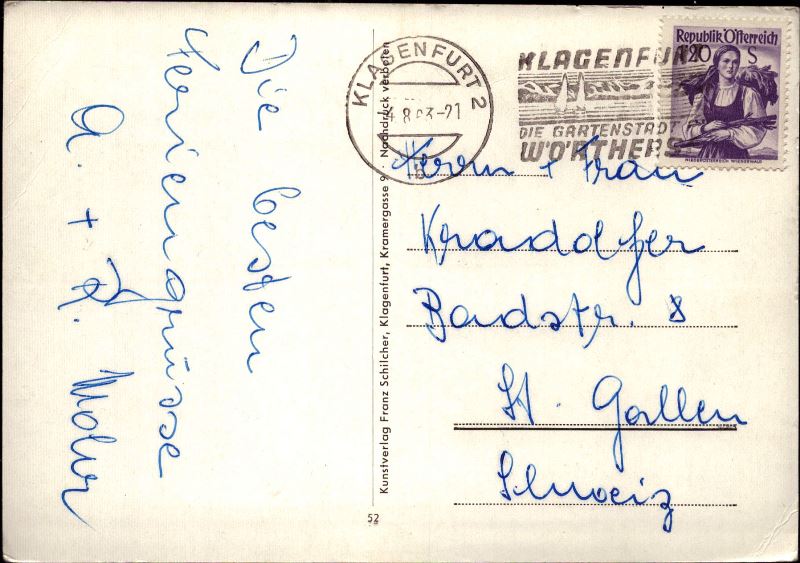 Die besten
Feriengrüsse
A. + R. Mohr
Kunstverlag Franz Schilcher, Klagenfurt, Kramergasse 9 · Nachdruck verboten
52
KLAGENFURT 2
4.8.63-21
b
KLAGENFUR
DIE GARTENSTADT
WÖRTHERS
Republik Österreich
1.20 S
NIEDERÖSTERREICH WIENERWALD
Herrn + Frau
Kradolfer
Bandstr. 8
St. Gallen
Schweiz